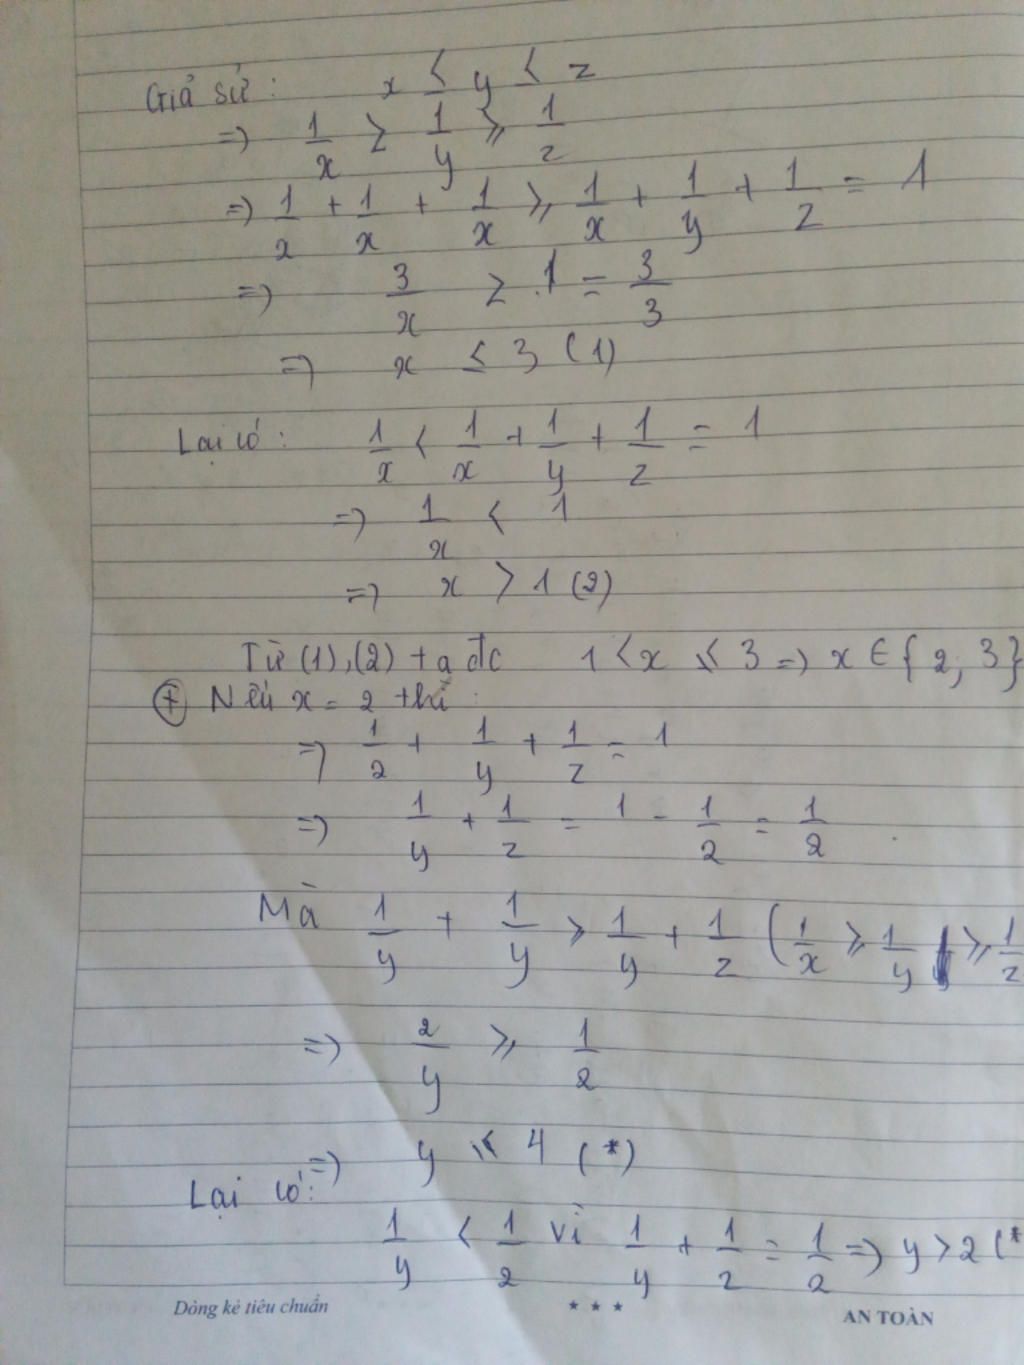 Giả sử: x ≤ y ≤ z
=> 1/x ≥ 1/y ≥ 1/z
=> 1/x + 1/x + 1/x ≥ 1/x + 1/y + 1/z = 1
=> 3/x ≥ 1 = 3/3
=> x ≤ 3 (1)
Lại có: 1/x < 1/x + 1/y + 1/z = 1
=> 1/x < 1
=> x > 1 (2)
Từ (1), (2) ta đc 1 < x ≤ 3 => x ∈ {2; 3}
⊕ Nếu x = 2 thì:
=> 1/2 + 1/y + 1/z = 1
=> 1/y + 1/z = 1 - 1/2 = 1/2
Mà 1/y + 1/y ≥ 1/y + 1/z (1/x ≥ 1/y ≥ 1/z
=> 2/y ≥ 1/2
=> y ≤ 4 (*)
Lại có:
1/y < 1/2 vì 1/y + 1/z = 1/2 => y > 2 (*
Dòng kẻ tiêu chuẩn *** AN TOÀN